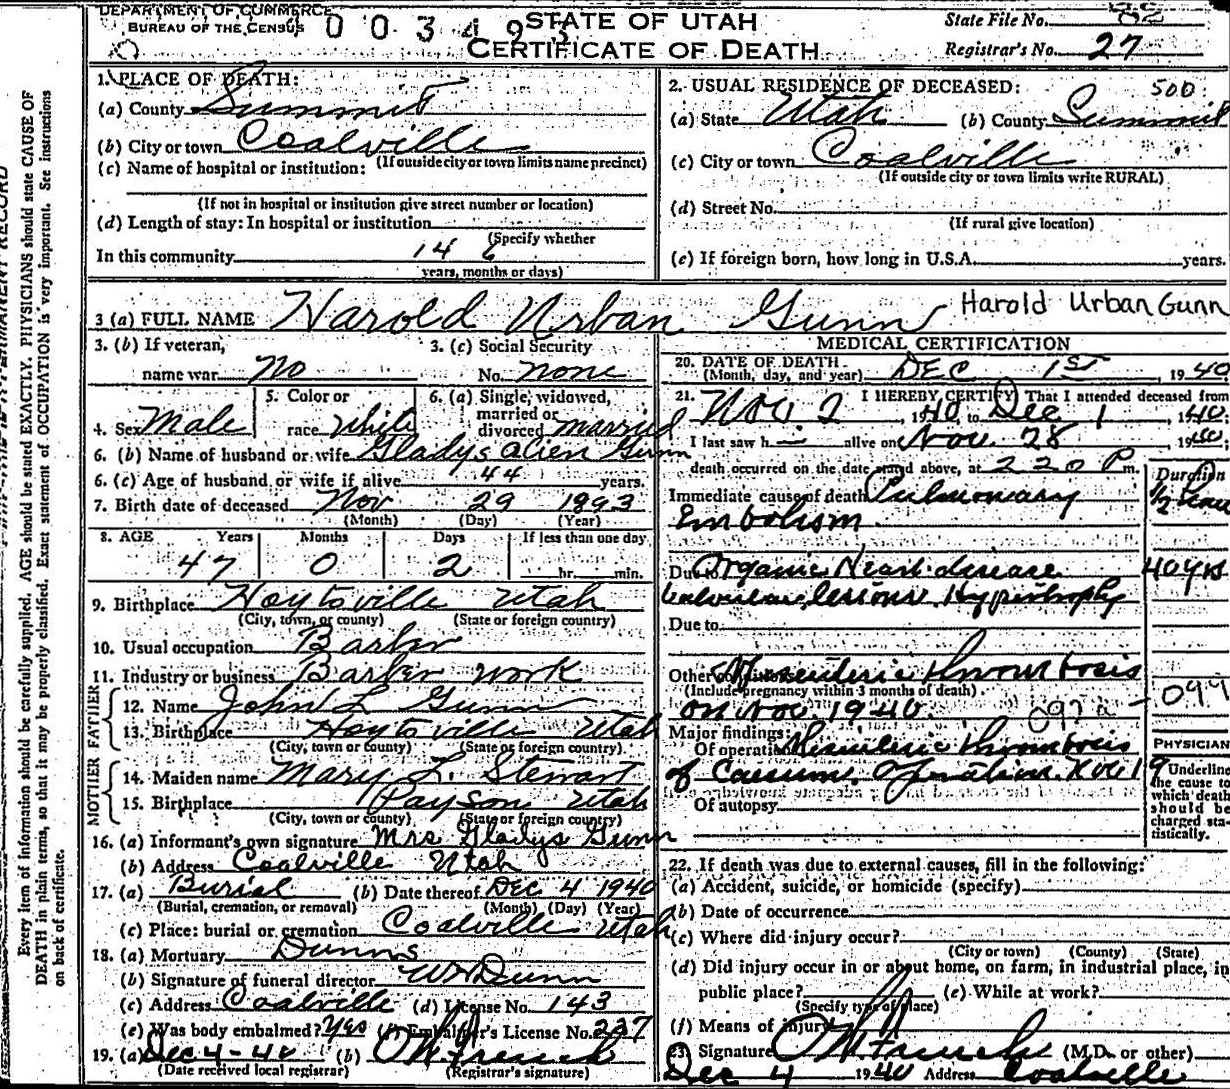 DEPARTMENT OF COMMERCE
BUREAU OF THE CENSUS
0 0 3 4 9 3
STATE OF UTAH
CERTIFICATE OF DEATH
State File No. 82
Registrar's No. 27
Every item of information should be carefully supplied. AGE should be stated EXACTLY. PHYSICIANS should state CAUSE OF
DEATH in plain terms, so that it may be properly classified. Exact statement of OCCUPATION is very important. See instructions
on back of certificate.
1. PLACE OF DEATH:
(a) County Summit
(b) City or town Coalville
(If outside city or town limits name precinct)
(c) Name of hospital or institution:
(If not in hospital or institution give street number or location)
(d) Length of stay: In hospital or institution
(Specify whether
In this community 14 6
years, months or days)
2. USUAL RESIDENCE OF DECEASED: 500
(a) State Utah (b) County Summit
(c) City or town Coalville
(If outside city or town limits write RURAL)
(d) Street No.
(If rural give location)
(e) If foreign born, how long in U.S.A. years.
3 (a) FULL NAME Harold Urban Gunn Harold Urban Gunn
3. (b) If veteran,
name war No
3. (c) Social Security
No. none
4. Sex Male
5. Color or
race White
6. (a) Single, widowed,
married or
divorced married
6. (b) Name of husband or wife Gladys Gunn
6. (c) Age of husband or wife if alive 44 years.
7. Birth date of deceased Nov 29 1893
(Month) (Day) (Year)
8. AGE Years Months Days If less than one day
47 0 2 hr. min.
9. Birthplace Hoytsville Utah
(City, town, or county) (State or foreign country)
10. Usual occupation Barber
11. Industry or business Barber work
FATHER
12. Name John L Gunn
13. Birthplace Hoytsville Utah
(City, town or county) (State or foreign country)
MOTHER
14. Maiden name Mary L. Stewart
15. Birthplace Payson Utah
(City, town or county) (State or foreign country)
16. (a) Informant's own signature Mrs Gladys Gunn
(b) Address Coalville Utah
17. (a) Burial (b) Date thereof Dec 4 1940
(Burial, cremation, or removal) (Month) (Day) (Year)
(c) Place: burial or cremation Coalville Utah
18. (a) Mortuary Dunns
(b) Signature of funeral director Dunn
(c) Address Coalville (d) License No. 143
(e) Was body embalmed? Yes (f) Embalmer's License No. 237
19. (a) Dec 4-40 (b) French
(Date received local registrar) (Registrar's signature)
MEDICAL CERTIFICATION
20. DATE OF DEATH
(Month, day, and year) DEC 1st 1940
21. I HEREBY CERTIFY That I attended deceased from
Nov 2 1940, to Dec 1, 1940.
I last saw h alive on Nov. 28 1940,
death occurred on the date stated above, at 2 20 P m.
Duration
Immediate cause of death Pulmonary
Embolism. 1/2 hour
Due to Organic Heart disease 40 yrs.
lesions. Hypertrophy
Due to
Other conditions Mesenteric thrombosis
(Include pregnancy within 3 months of death)
on Nov 1940. 092a - 094
Major findings:
Of operation Mesenteric thrombosis
of Caecum. Operation. Nov 19
Of autopsy
PHYSICIAN
Underline
the cause to
which death
should be
charged sta-
tistically.
22. If death was due to external causes, fill in the following:
(a) Accident, suicide, or homicide (specify)
(b) Date of occurrence
(c) Where did injury occur?
(City or town) (County) (State)
(d) Did injury occur in or about home, on farm, in industrial place, in
public place? (e) While at work?
(Specify type of place)
(f) Means of injury
23. Signature French (M.D. or other)
Dec 4 1940 Address Coalville